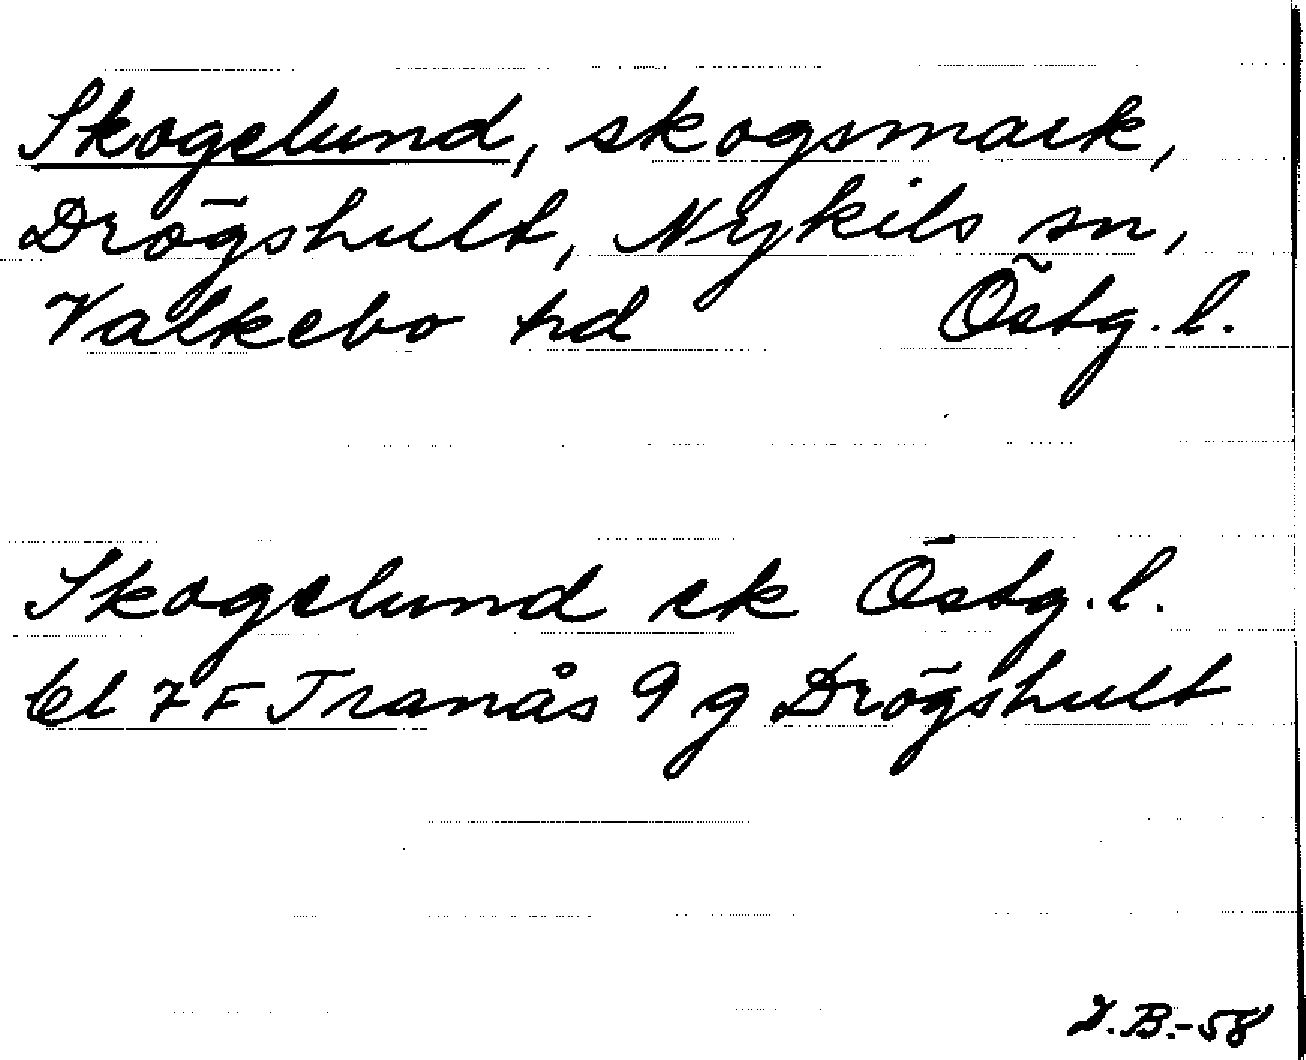 Skogelund, skogsmark,
Drögshult, Nykils sn,
Valkebo hd Östg. l.
Skogelund ek Östg. l.
bl 7 F Tranås 9 g Drögshult
I.B.-58